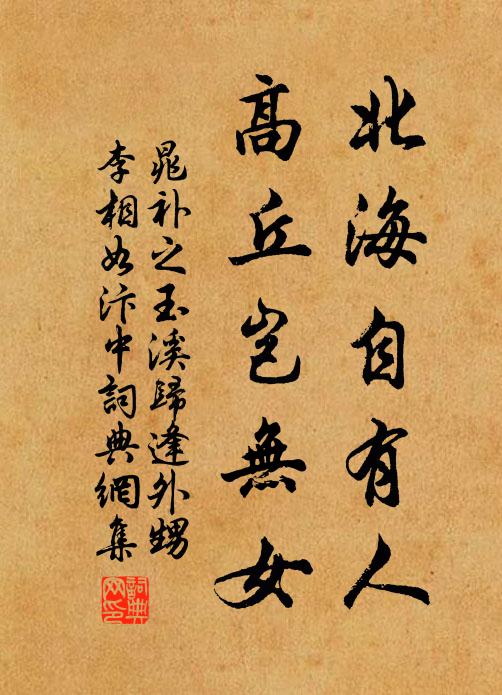 北海自有人
高丘岂無女
晁补之玉溪歸逢外甥
李相如汴中詞典網集
詞典網印